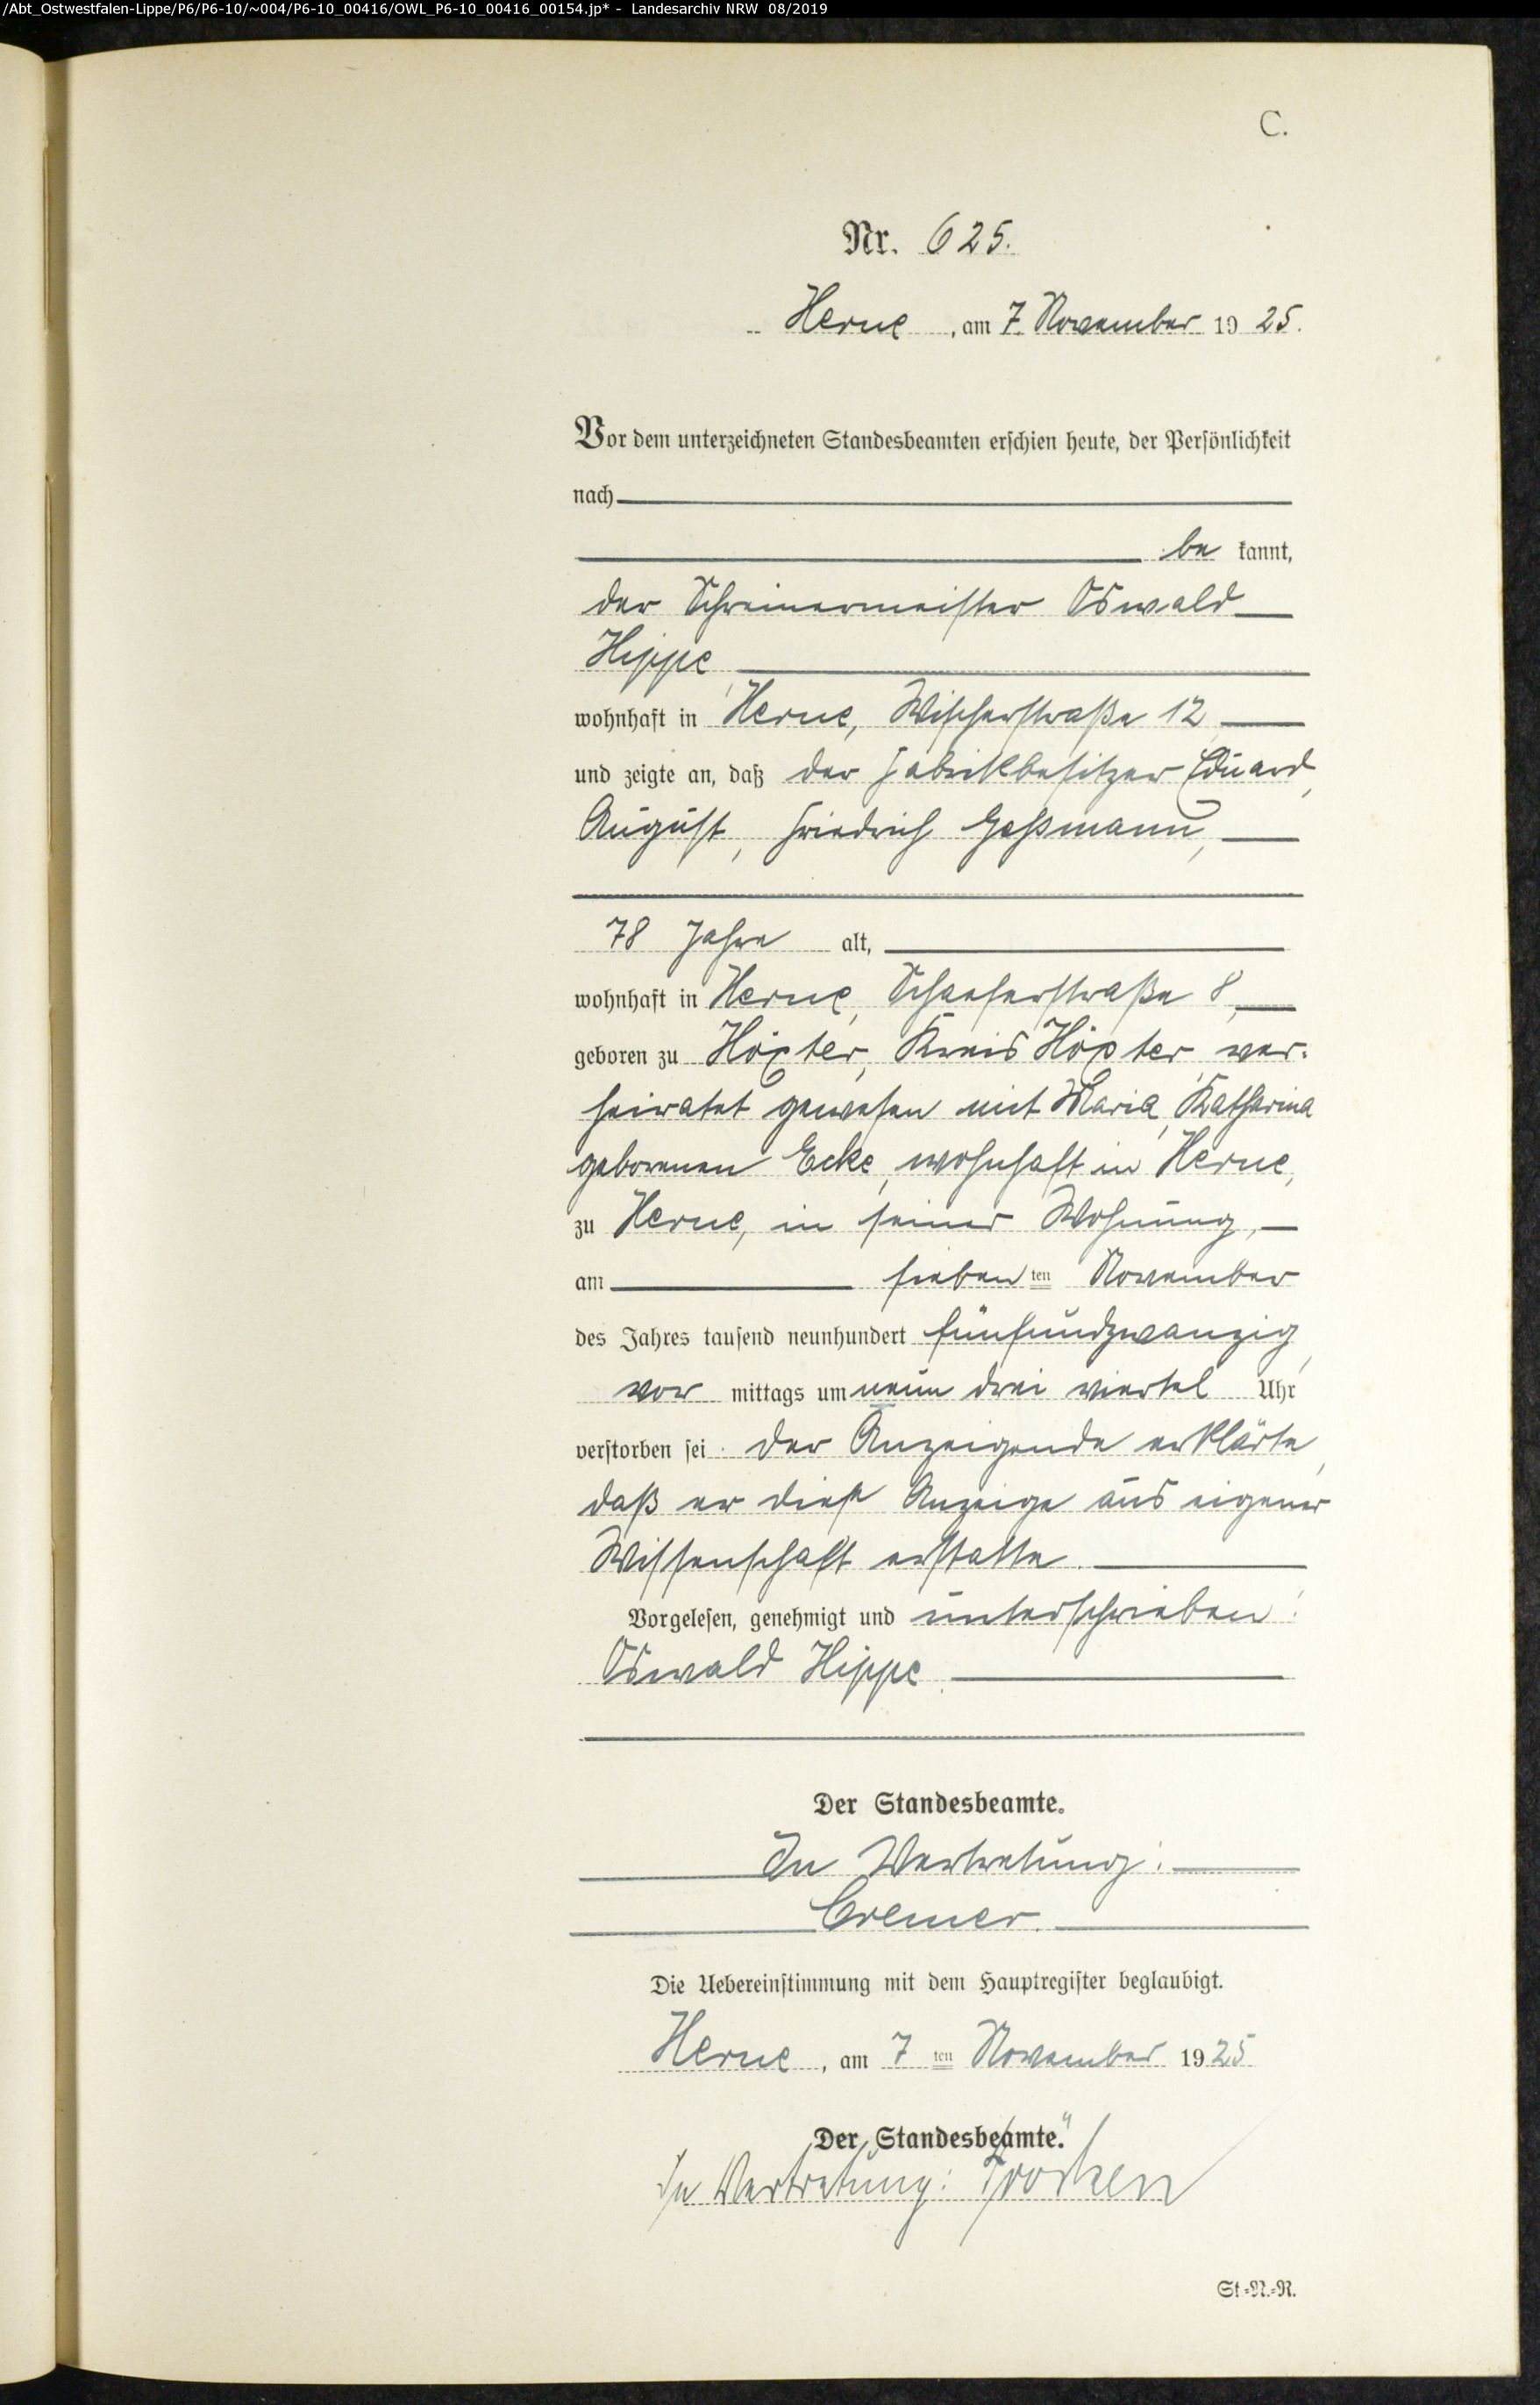 /Abt_Ostwestfalen-Lippe/P6/P6-10/~004/P6-10_00416/OWL_P6-10_00416_00154.jp* - Landesarchiv NRW 08/2019
C.
Nr. 625.
Herne, am 7. November 1925.
Vor dem unterzeichneten Standesbeamten erschien heute, der Persönlichkeit
nach
be kannt,
der Schreinermeister Oswald
Hippe
wohnhaft in Herne, Wischerstraße 12
und zeigte an, daß der Fabrikbesitzer Eduard,
August, Friedrich Geßmann,
78 Jahre alt,
wohnhaft in Herne, Schaeferstraße 8,
geboren zu Höxter, Kreis Höxter, ver-
heiratet gewesen mit Maria, Katharina
geborenen Ecke, wohnhaft in Herne,
zu Herne, in seiner Wohnung,
am sieben ten November
des Jahres tausend neunhundert fünfundzwanzig,
vor mittags um neun drei viertel Uhr
verstorben sei. Der Anzeigende erklärte,
daß er diese Anzeige aus eigener
Wissenschaft erstatte.
Vorgelesen, genehmigt und unterschrieben:
Oswald Hippe.
Der Standesbeamte.
In Vertretung:
Cremer.
Die Uebereinstimmung mit dem Hauptregister beglaubigt.
Herne, am 7 ten November 1925
Der Standesbeamte.
In Vertretung:
St.-N.-R.